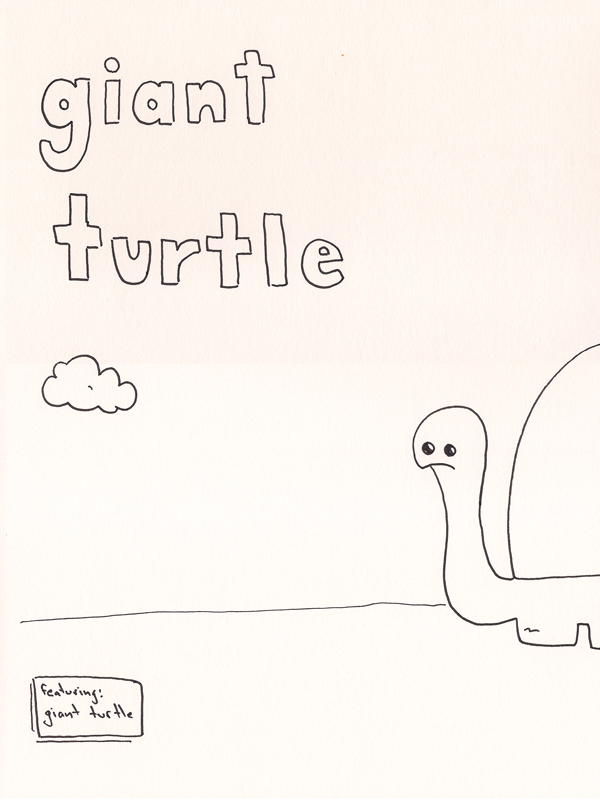 giant
turtle
featuring:
giant turtle